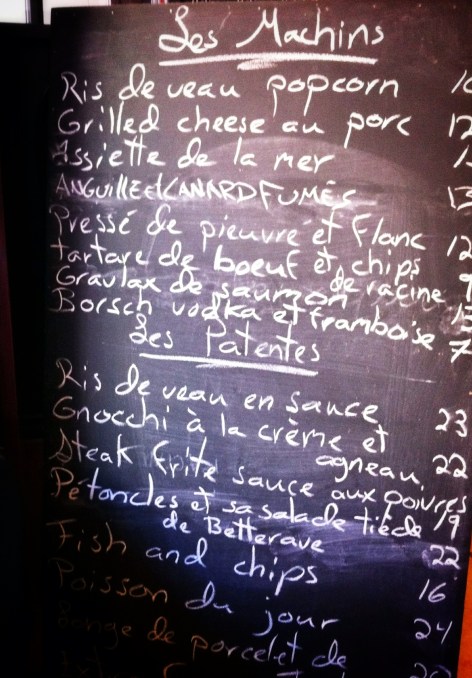 Les Machins
Ris de veau popcorn
Grilled cheese au porc
Assiette de la mer
ANGUILLE et CANARD FUMÉS 13
Pressé de pieuvre et flanc 12
tartare de boeuf et chips
de racine 9
Gravlax de saumon 13
Borsch vodka et framboise 7
Les Patentes
Ris de veau en sauce 23
Gnocchi à la crème et
agneau 22
Steak frite sauce aux poivres 19
Pétoncles et sa salade tiède
de Betterave 22
Fish and chips 16
Poisson du jour 24
Longe de porcelet de